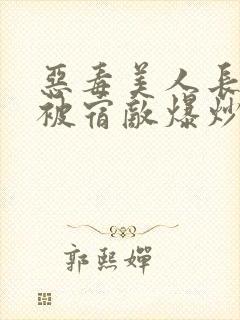 惡毒美人長
被宿敵爆炒
郭熙嬋